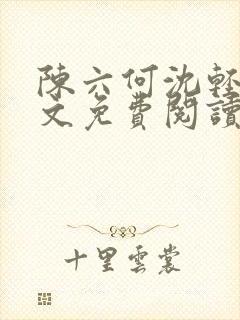 陳六何沈輕
文免費閱讀
十里雲裳